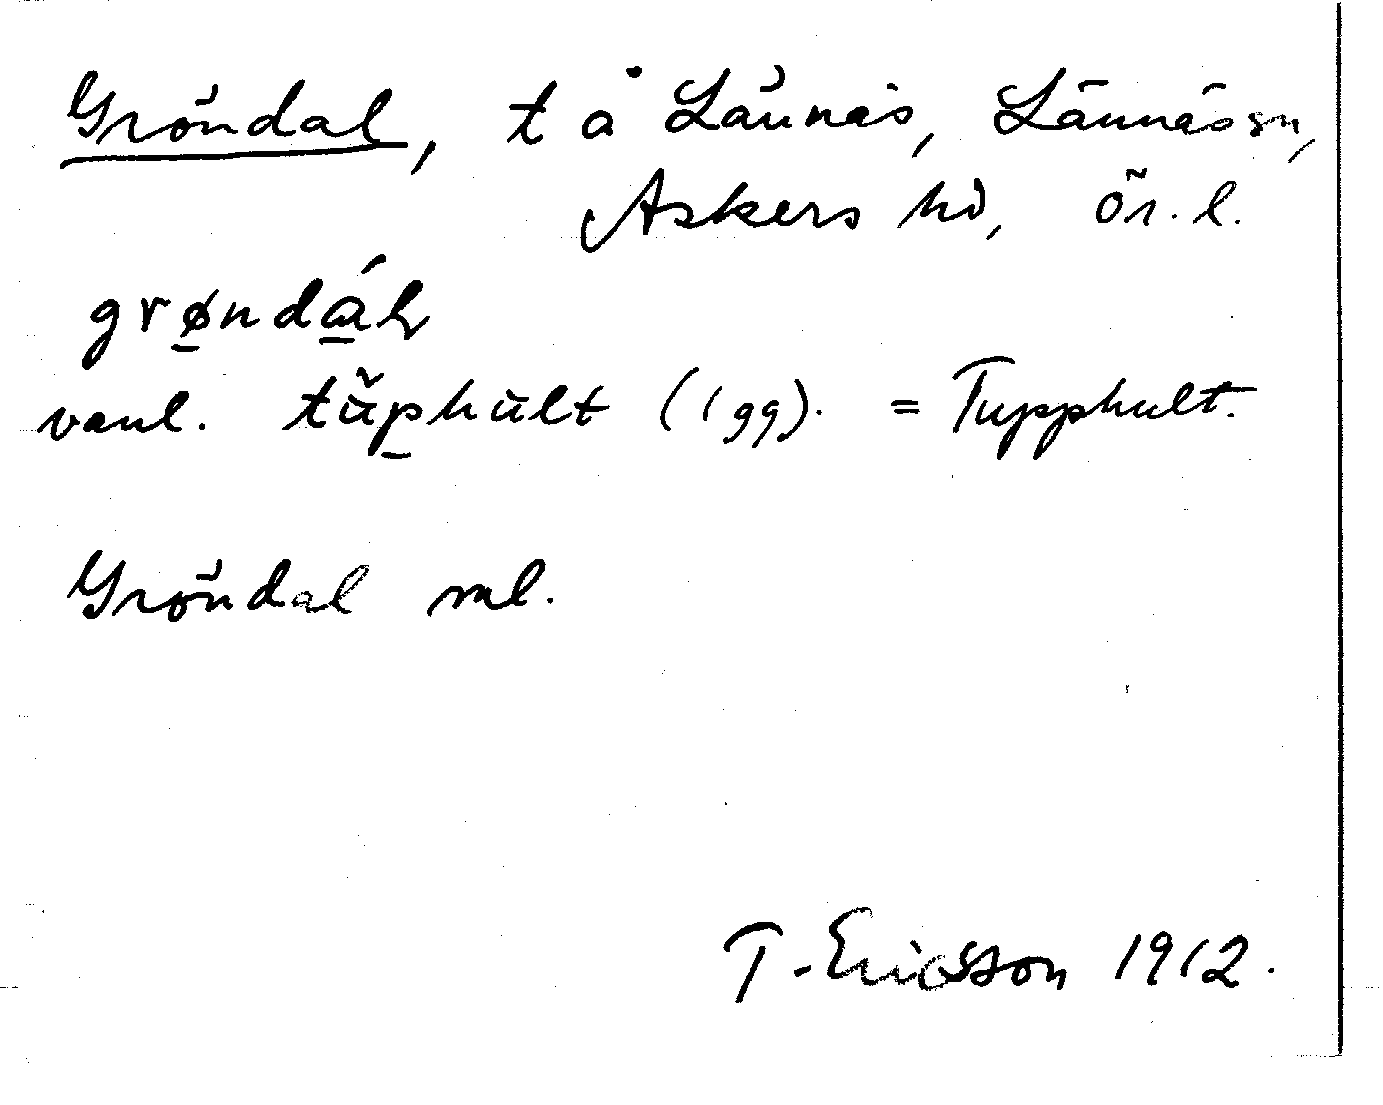 Gröndal, t å Lännäs, Lännäs sn,
Askers hd, Ör. l.
grøndál
vanl. tŭphult (1 gg). = Tupphult.
Gröndal ml.
T. Ericsson 1912.